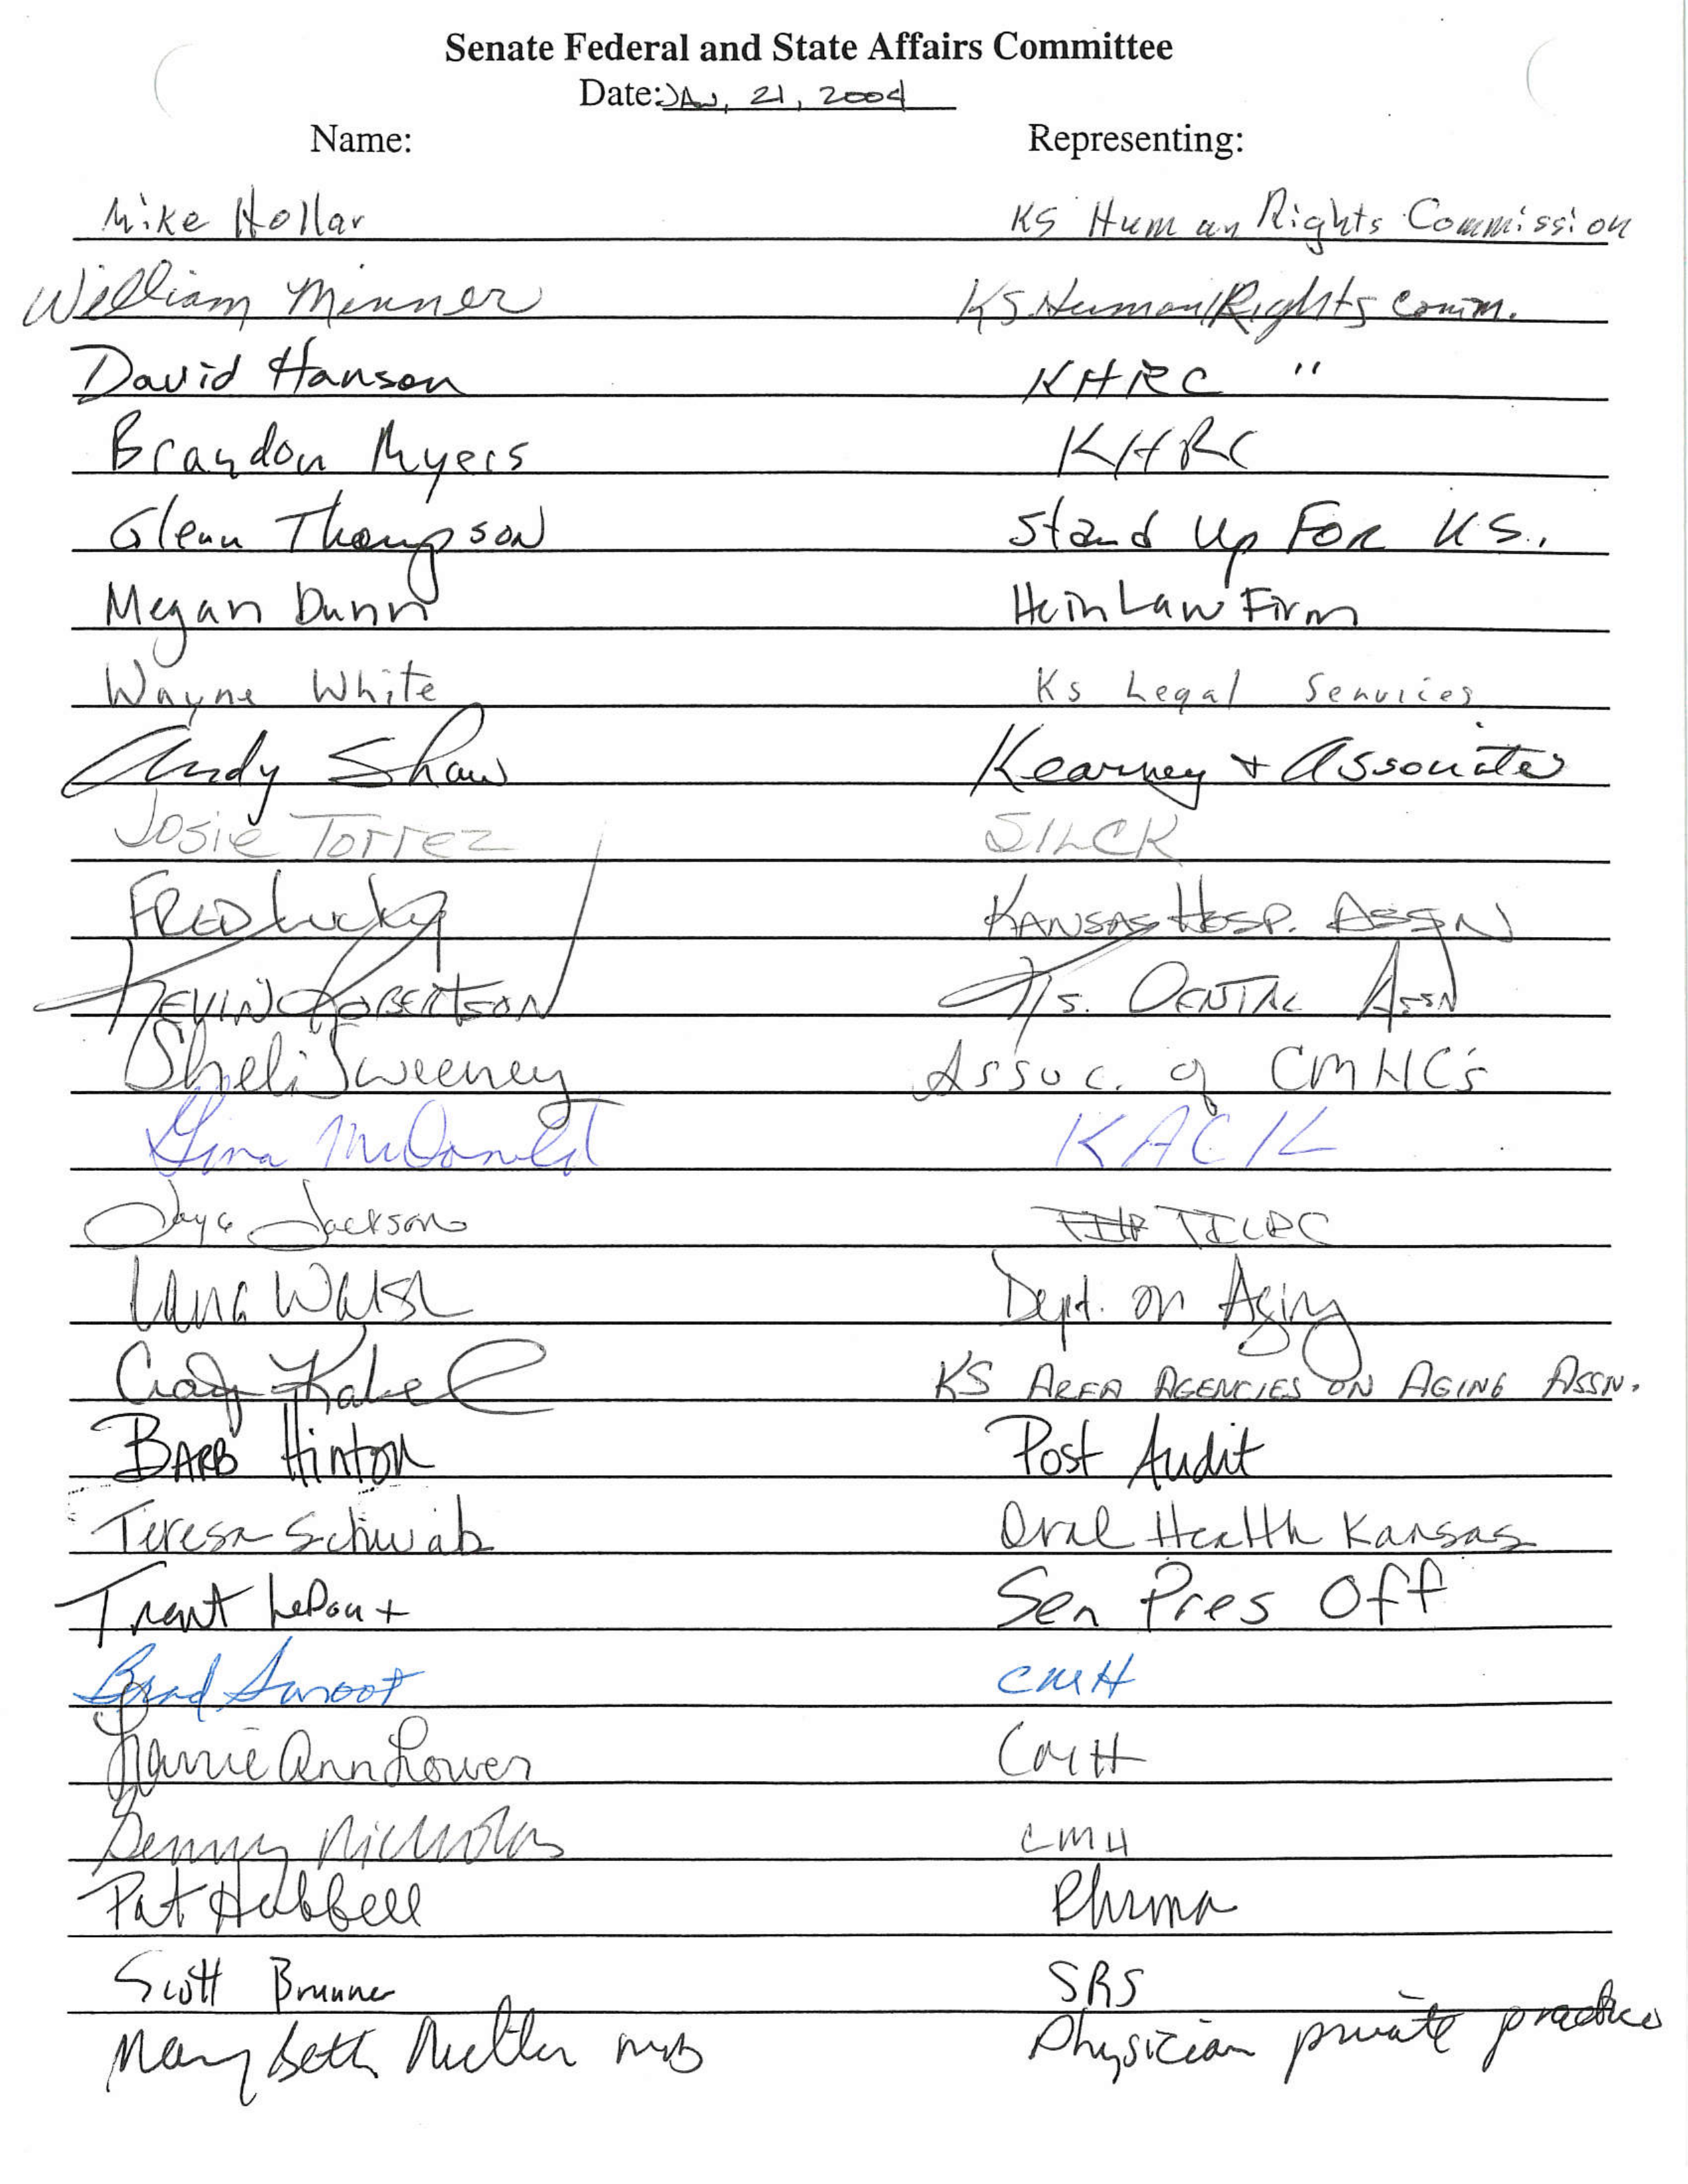 Senate Federal and State Affairs Committee
Date: JAN, 21, 2004
Name: Representing:
Mike Hollar KS Human Rights Commission
William Minner KS Human Rights Comm.
David Hanson KHRC "
Brandon Myers KHRC
Glenn Thompson Stand Up For KS.
Megan Dunn Hein Law Firm
Wayne White Ks Legal Services
Andy Shaw Kearney + Associates
Josie Torrez SILCK
FRED Lucky KANSAS HOSP. ASSN
KEVIN ROBERTSON Ks. DENTAL ASSN
Sheli Sweeney Assoc. of CMHC's
Gina McDonald KACIL
Jackson TILRC
Walsh Dept. on Aging
Craig Kabel KS AREA AGENCIES ON AGING ASSN.
BARB Hinton Post Audit
Teresa Schwab Oral Health Kansas
Trent LeDoux Sen Pres Off
Brad Smoot CMH
Larrie Ann Lower CMH
Denny Nicholas CMH
Pat Hubbell Phrma
Scott Brunner SRS
Mary Beth MD Physician private practice